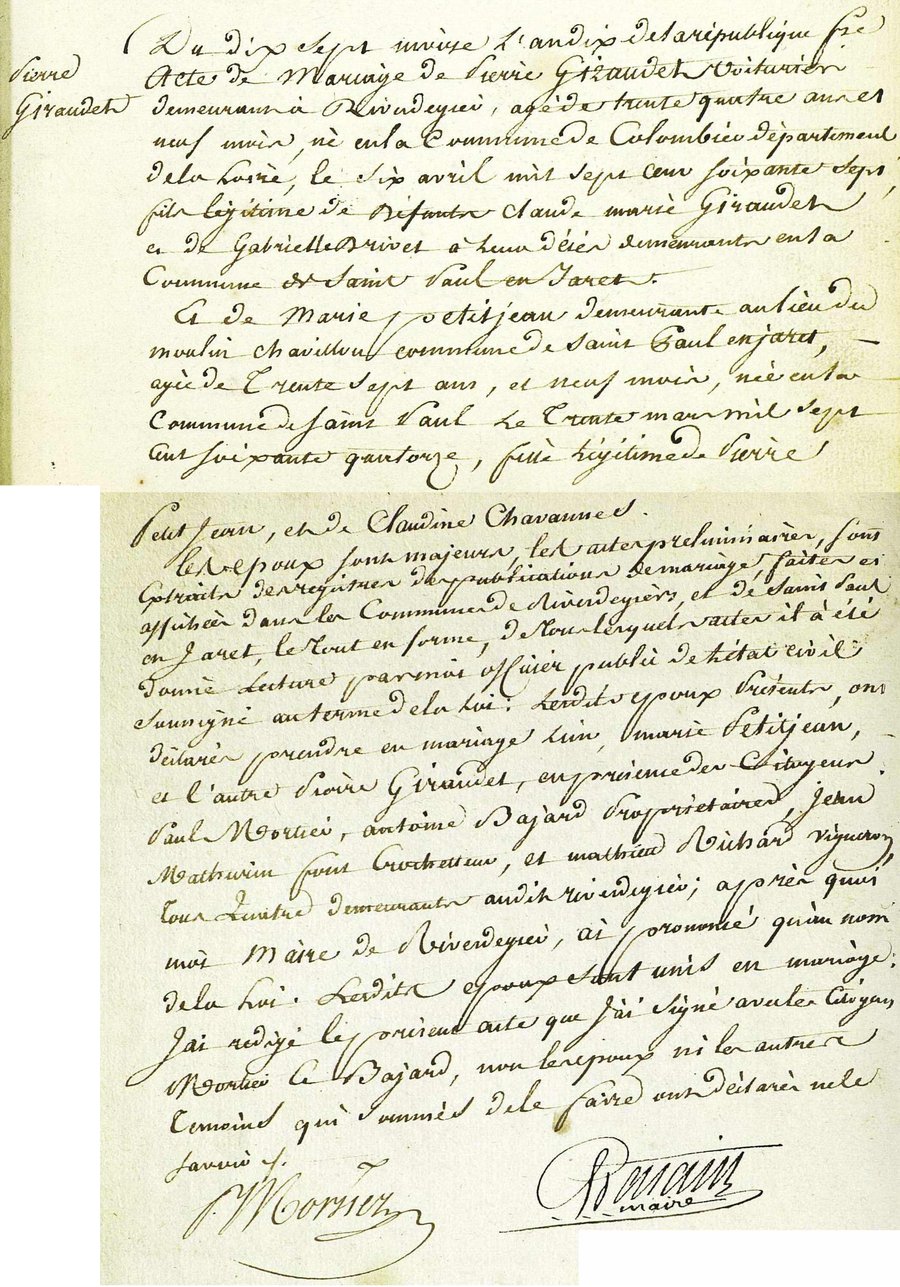 Pierre
Giraudet
Du dix sept nivose L'an dix de la république frse
Acte de Mariage de Pierre Giraudet Voiturier
demeurant à Rivedegier, agé de trente quatre ans et
neuf mois, né en la Commune de Colombier département
de la Loire, le six avril mil sept cent soixante sept,
fils légitime de défunts Claude marie Giraudet
et de Gabrielle Brivet à leur décès demeurants en la
Commune de Saint Paul en Jaret.
Et de Marie petitjean demeurante au lieu du
moulin chavillon commune de Saint Paul en jaret,
agée de Trente sept ans, et neuf mois, née en la
Commune de Saint Paul Le Trente mars mil sept
cent soixante quatorze, fille Légitime de Pierre
Petit Jean, et de Claudine Chavannes.
les epoux sont majeurs, les actes preliminaires, sont
Extraits des registres de publications de mariage, faites et
affichées dans les Communes de Rivedegiers, et de Saint Paul
en Jaret, le Tout en forme, de Tous lesquels actes il à été
donné Lecture par moi officier public de l'état civil
soussigné au terme de la Loi: Lesdits epoux Présents, ont
déclarés prendre en mariage L'un, marie Petitjean,
et l'autre Pierre Giraudet, en présence des Citoyens
Paul Mortier, antoine Bajard Propriétaires, Jean
Mathurin font Crochetteur, et mathieu Richard vigneron,
Tous Quatre demeurants audit rivedegier; après quoi
moi Maire de Rivedegier, ai prononcé qu'au nom
de la Loi: Lesdits epoux sont unis en mariage:
J'ai redigé le présent acte que J'ai signé avec les Citoyens
Mortier & Bajard, non les epoux ni les autres
Temoins qui sommés de le faire ont déclarés ne le
savoir /.
P. Mortier
maire